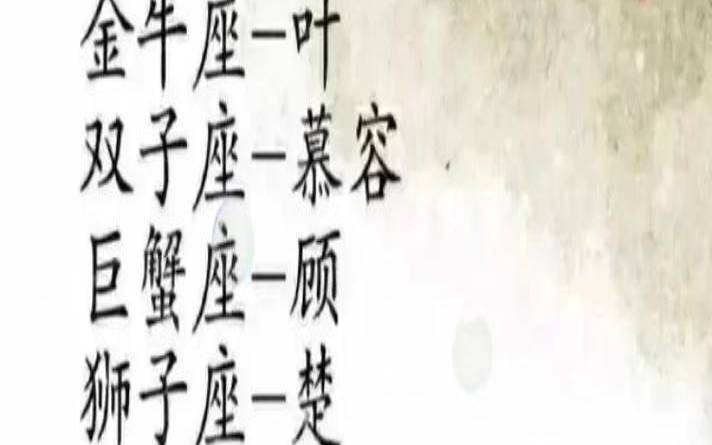 金牛座-叶
双子座-慕容
巨蟹座-顾
狮子座-楚